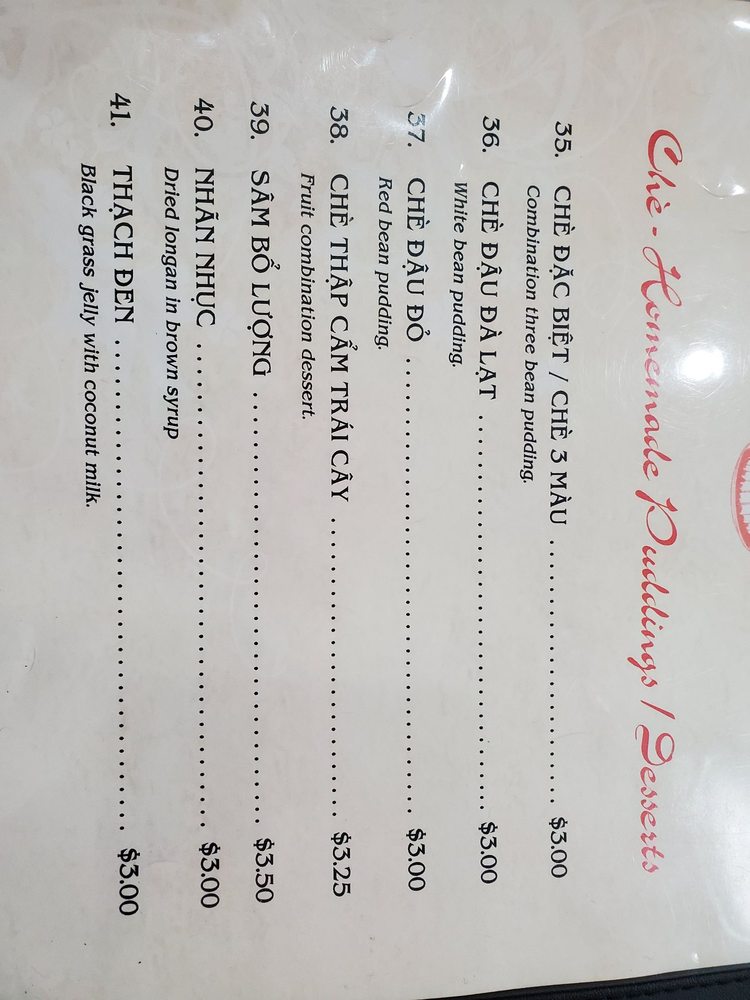 Chè - Homemade Puddings / Desserts
35. CHÈ ĐẶC BIỆT / CHÈ 3 MÀU . . . . . . . . . . . . . . . . . . . . . . $3.00
Combination three bean pudding.
36. CHÈ ĐẬU ĐÀ LẠT . . . . . . . . . . . . . . . . . . . . . . . . . . . . . . . $3.00
White bean pudding.
37. CHÈ ĐẬU ĐỎ . . . . . . . . . . . . . . . . . . . . . . . . . . . . . . . . . . . . $3.00
Red bean pudding.
38. CHÈ THẬP CẨM TRÁI CÂY . . . . . . . . . . . . . . . . . . . . . . . $3.25
Fruit combination dessert.
39. SÂM BỔ LƯỢNG . . . . . . . . . . . . . . . . . . . . . . . . . . . . . . . . . $3.50
40. NHÃN NHỤC . . . . . . . . . . . . . . . . . . . . . . . . . . . . . . . . . . . . . $3.00
Dried longan in brown syrup
41. THẠCH ĐEN . . . . . . . . . . . . . . . . . . . . . . . . . . . . . . . . . . . . . $3.00
Black grass jelly with coconut milk.